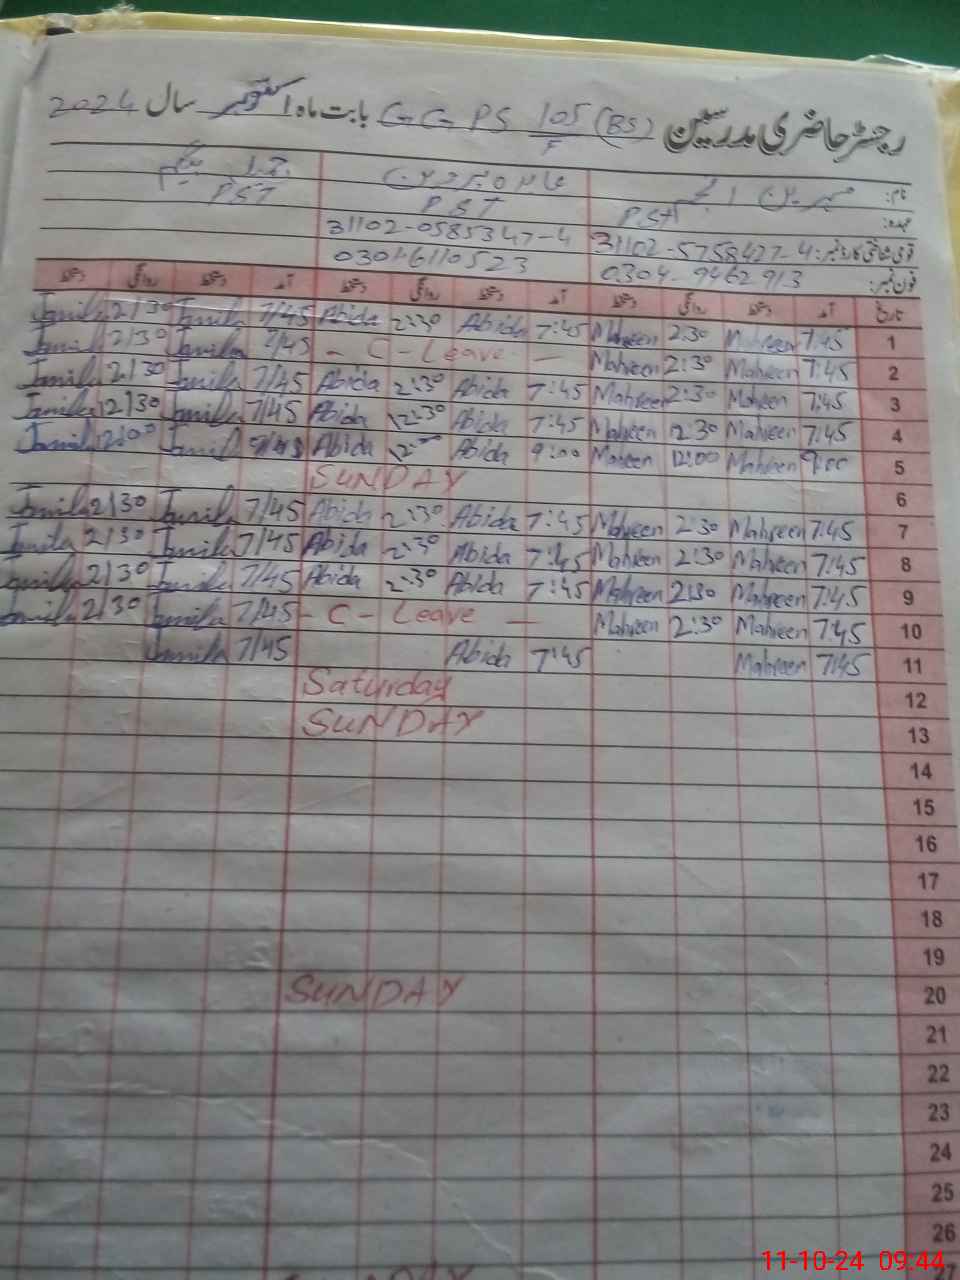 رجسٹر حاضری مدرسین GGPS 105/F (BS) بابت ماہ اکتوبر سال 2024
نام:
عہدہ: PST PST PST
قومی شناختی کارڈ نمبر: 31102-5758427-4 31102-0585347-4
فون نمبر: 0304-9462913 03016110523
تاریخ آمد دستخط روانگی دستخط آمد دستخط روانگی دستخط آمد دستخط روانگی دستخط
1 7:45 Mahreen 2:30 Mahreen 7:45 Abida 2:30 Abida 7/45 Jamila 2/30 Jamila
2 7:45 Mahreen 2:30 Mahreen - C - Leave - 7/45 Jamila 2/30 Jamila
3 7:45 Mahreen 2:30 Mahreen 7:45 Abida 2:30 Abida 7/45 Jamila 2/30 Jamila
4 7:45 Mahreen 12:30 Mahreen 7:45 Abida 12:30 Abida 7/45 Jamila 12/30 Jamila
5 9:00 Mahreen 12:00 Mahreen 9:00 Abida 12:00 Abida Jamila 12/00 Jamila
6 SUNDAY
7 7:45 Mahreen 2:30 Mahreen 7:45 Abida 2:30 Abida 7/45 Jamila 2/30 Jamila
8 7:45 Mahreen 2:30 Mahreen 7:45 Abida 2:30 Abida 7/45 Jamila 2/30 Jamila
9 7:45 Mahreen 2:30 Mahreen 7:45 Abida 2:30 Abida 7/45 Jamila 2/30 Jamila
10 7:45 Mahreen 2:30 Mahreen - C - Leave - 7/45 Jamila 2/30 Jamila
11 7:45 Mahreen 7:45 Abida 7/45 Jamila
12 Saturday
13 SUNDAY
14
15
16
17
18
19
20 SUNDAY
21
22
23
24
25
26
27
11-10-24 09:44